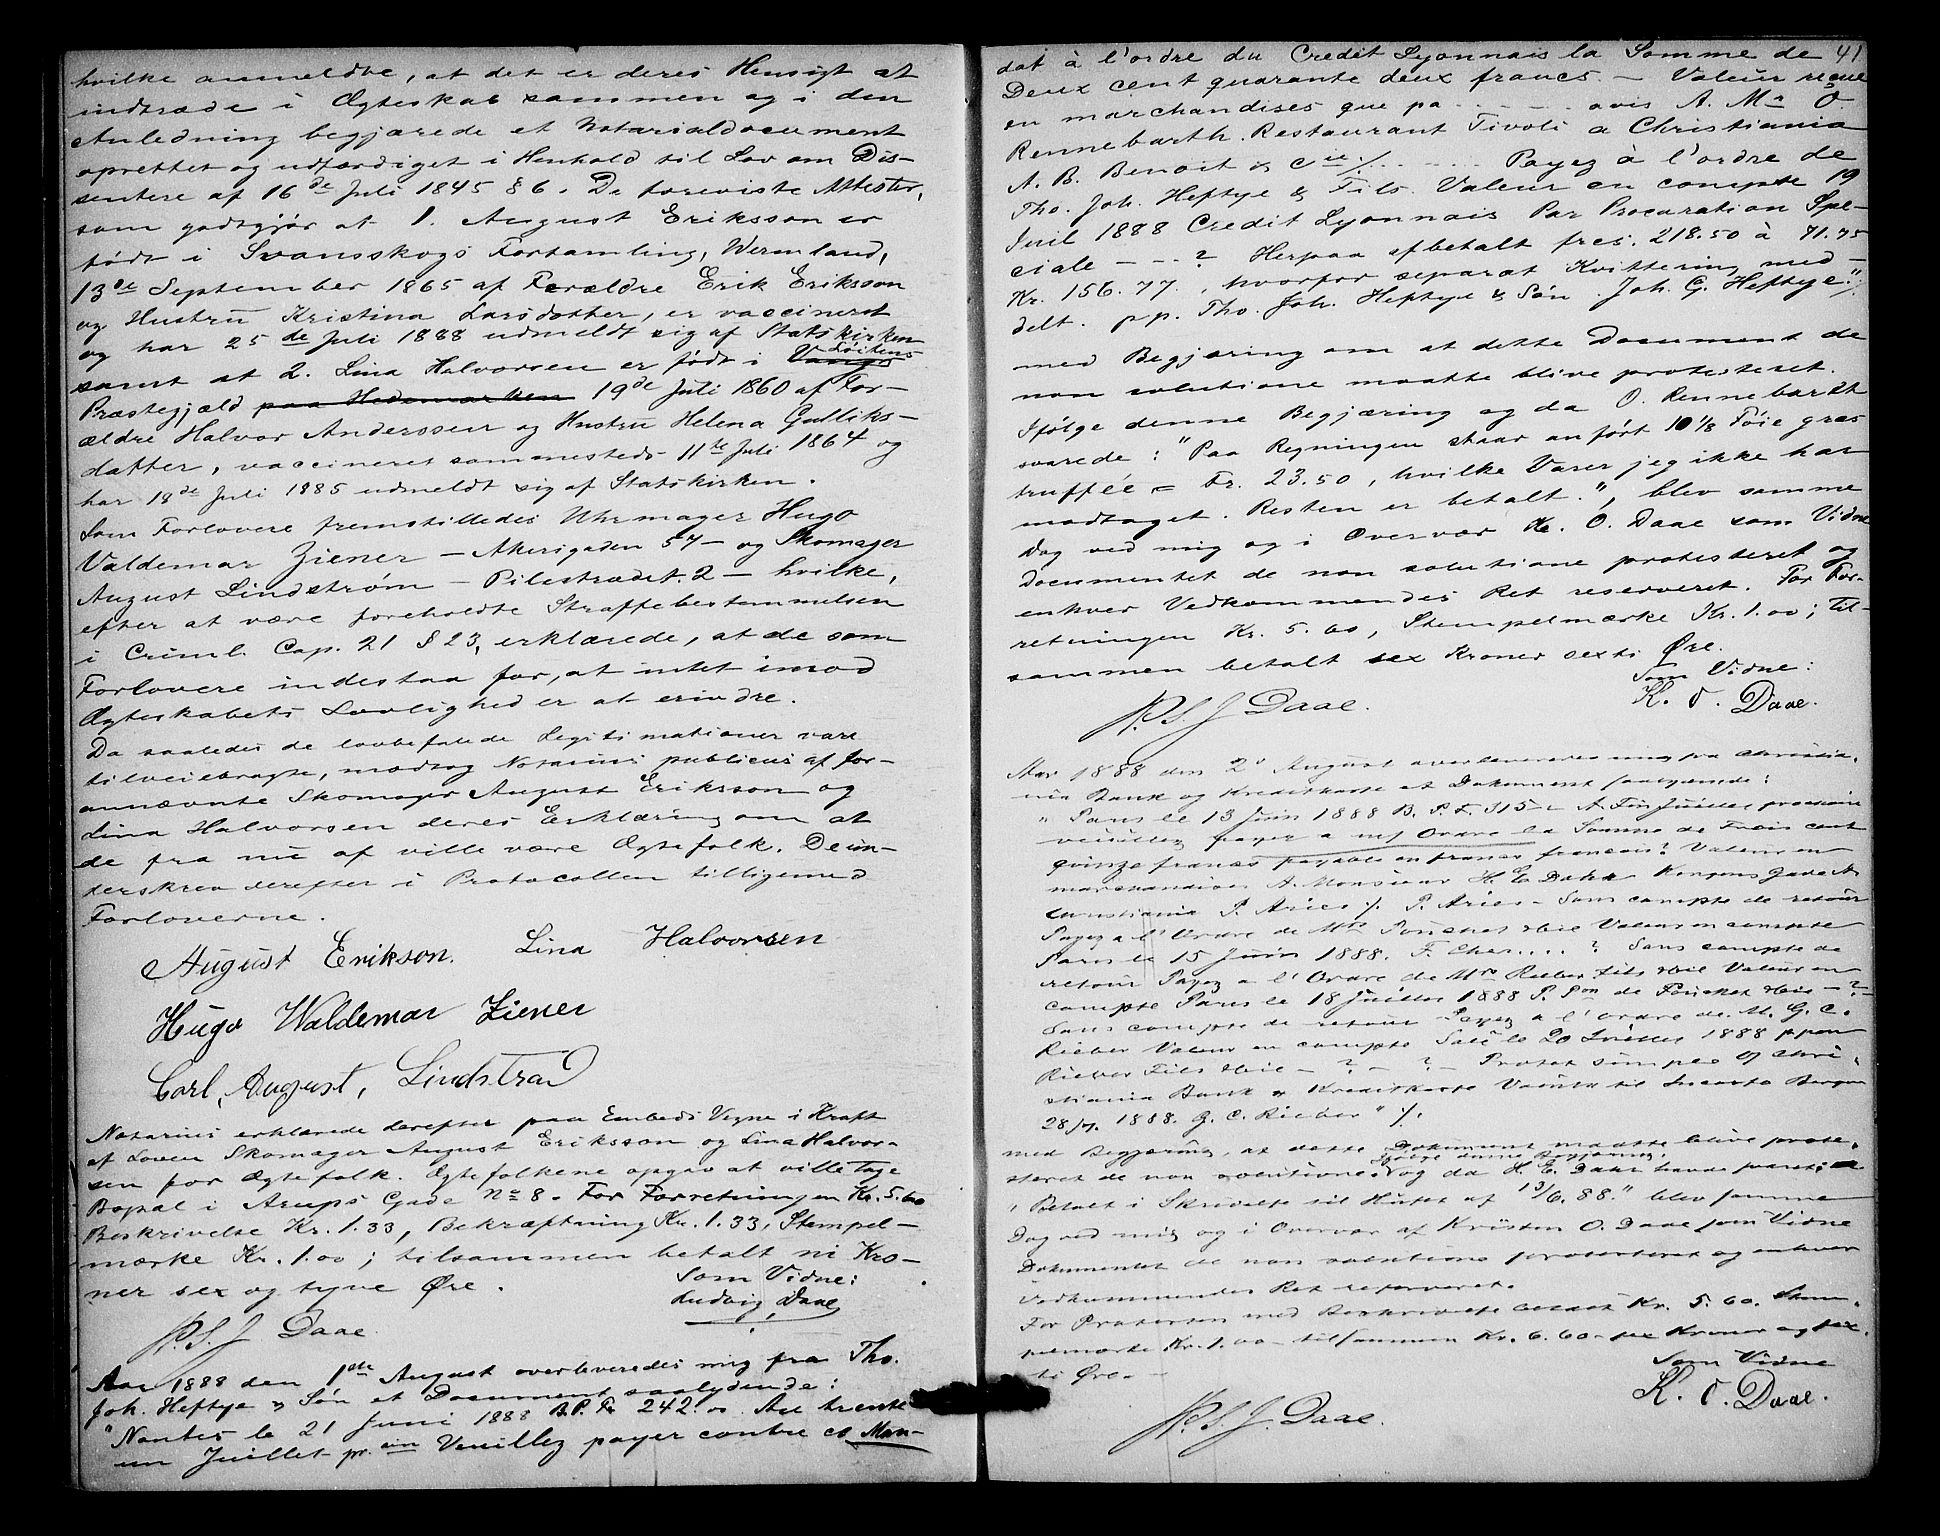 hvilke anmeldte, at det er deres Hensigt at
indtræde i Ægteskab sammen og i den
Anledning begjærede et Notarialdocument
oprettet og udfærdiget i Henhold til Lov om Dis-
sentere af 16de Juli 1845 § 6. De foreviste Attester,
som godtgjør at 1. August Eriksson er
født i Svansskogs Forsamling, Wermland,
13de September 1865 af Forældre Erik Eriksson
og Hustru Kristina Larsdatter, er vaccineret
og har 25de Juli 1888 udmeldt sig af Statskirken
samt at 2. Lina Halvorsen er født i Vangs Løitens
Præstegjæld paa Hedemarken 19de Juli 1860 af For-
ældre Halvor Anderssen og Hustru Helena Gulliks-
datter, vaccineret sammesteds 11te Juli 1864 og
har 18de Juli 1885 udmeldt sig af Statskirken.
Som Forlovere fremstilledes Uhrmager Hugo
Valdemar Ziener – Akersgaden 57 – og Skomager
August Lindstrøm – Pilestrædet. 2 – hvilke,
efter at være foreholdte Straffebestemmelsen
i Criml. Cap. 21 § 23, erklærede, at de som
Forlovere indestaa for, at intet imod
Ægteskabets Lovlighed er at erindre.
Da saaledes de lovbefalede Legitimationer vare
tilveiebragte, modtog Notarius publicus af for-
annævnte Skomager August Eriksson og
Lina Halvorsen deres Erklæring om at
de fra nu af ville være Ægtefolk. De un-
derskrev derefter i Protocollen tilligemed
Forloverne.
August Erikson. Lina Halvorsen
Hugo Waldemar Ziener
Carl, August, Lindstrø
Notarius erklærede derefter paa Embeds Vegne i Kraft
af Loven Skomager August Eriksson og Lina Halvor-
sen for Ægtefolk. Ægtefolkene opgav at ville tage
Bopæl i Arups Gade No 8. For Forretningen Kr. 5.60
Beskrivelse Kr. 1.33, Bekræftning Kr. 1.33, Stempel-
mærke Kr. 1.00; tilsammen betalt ni Kro-
ner sex og tyve Øre.
Som Vidne:
Ludvig Daae
N.S.J Daae
Aar 1888 den 1ste August overleveredes mig fra Tho.
Joh. Heftye & Søn et Document saalydende:
"Nantes le 21 Juni 1888 B.P. Fr 242.00 Au trente
un Juillet pr. Veuillez payer contre ce Man-
41
dat à l'ordre du Credit Lyonnais la Somme de
Deux cent quarante deux francs – Valeur reçue
en marchandises que pa - - - - avis A. Mr O.
Rennebarth. Restaurant Tivoli a Christiania
A. B. Benoit & Cie ./. - - - - Payez à l'ordre de
Tho. Joh. Heftye & Fils. Valeur en compte 19
Juil 1888 Credit Lyonnais Par Procuration Spe-
ciale - - - ? Herpaa afbetalt frcs. 218.50 à 71.75
Kr. 156.77., hvorfor separat Kvittering med-
delt. p.p. Tho. Joh. Heftye & Søn. Joh. G. Heftye." ./.
med Begjæring om at dette Document de
non solutione maatte blive protesteret.
Ifølge denne Begjæring og da O. Rennebarth
svarede: "Paa Regningen staar anført 10 1/8 Foie gras
truffée = Fr. 23.50, hvilke Varer jeg ikke har
modtaget. Resten er betalt.", blev samme
Dag ved mig og i Overvær K. O. Daae som Vidne
Documentet de non solutione protesteret og
enhver Vedkommendes Ret reserveret. For For-
retningen Kr. 5.60, Stempelmærke Kr. 1.00; til-
sammen betalt sex Kroner sexti Øre.
Som Vidne:
K. O. Daae.
N.S.J Daae.
Aar 1888 den 2d August overleveredes mig fra Christia-
nia Bank og Kreditkasse et Dokument saalydende:
"Paris le 13 Juin 1888 B. P. F. 315 - A Fin Juillet prochain
veuillez payer a m/ Ordre la Somme de Trois cent
quinze francs payable en francs francais? Valeur en
marchandises A. Monsieur H. E. Dahr Kongens Gade
Christiania P. Aries ./. P. Aries – Sans compte de retour
Payez a l'Ordre de Mrs Valeur en compte
Paris le 15 Juin 1888. F. ? Sans compte de
retour Payez a l'Ordre de Mrs Rieber Fils & Cie Valeur en
compte Paris le 18 Juillet 1888 P. Pon de &Cie – ? –
Sans compte de retour Payez a l'ordre de M. G. C.
Rieber Valeur en compte le 20 Juillet 1888 ppon
Rieber Fils & Cie – ? – ? – Protet simple Chri-
stiania Bank & Kreditkasse Valuta til Incasso Bergen
28/7. 1888. G. C. Rieber" ./.
med Begjæring, at dette Dokument maatte blive prote-
steret de non solutione. Ifølge denne Begjæring, og da H. E. Dahr havde svaret:
"Betalt i Skrivelse til Huset af 13/6. 88." blev samme
Dag ved mig og i Overvær af Kristen O. Daae som Vidne
Dokumentet de non solutione protesteret og enhver
Vedkommendes Ret reserveret.
For Protesten med Beskrivelse betalt Kr. 5.60. Stem-
pelmærke Kr. 1.00 – tilsammen Kr. 6.60 – sex Kroner og sex-
ti Øre. –
Som Vidne
K. O. Daae.
N.S.J. Daae.